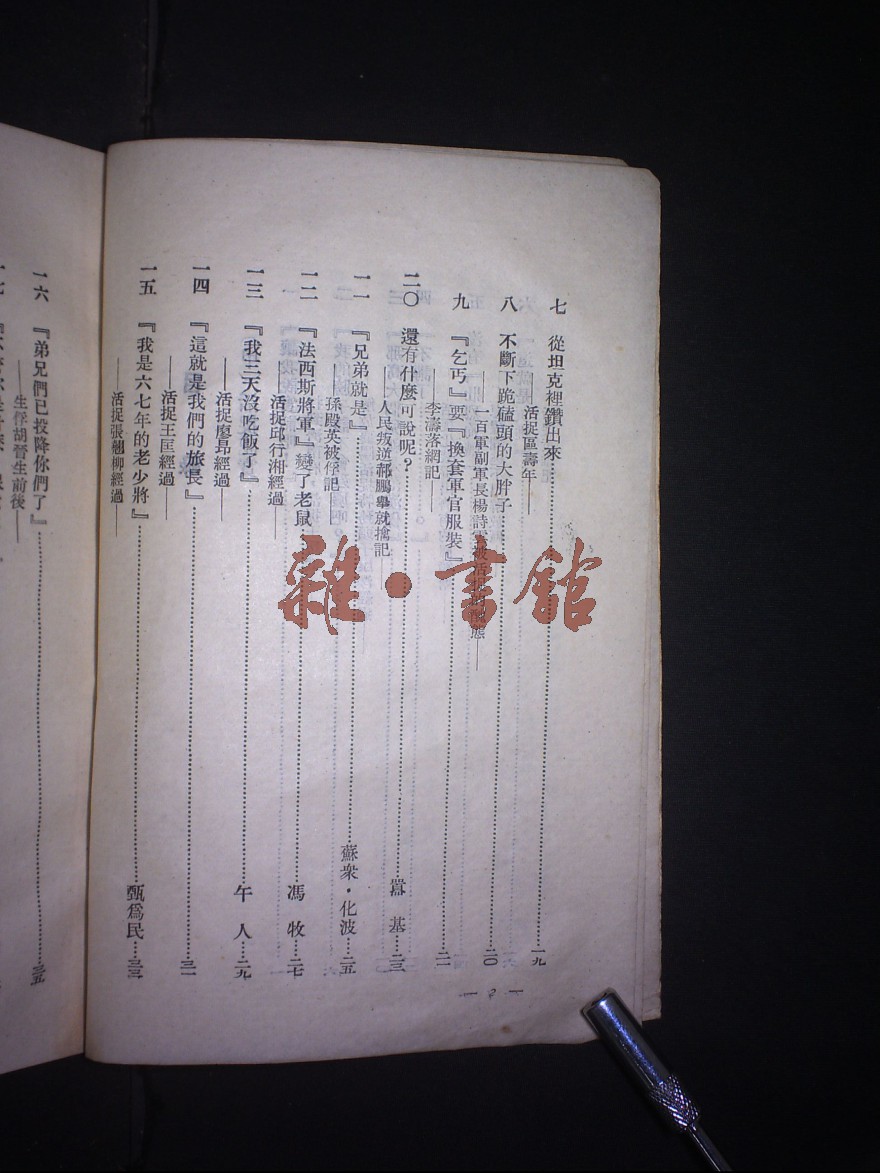 七 從坦克裡鑽出來……一九
——活捉區壽年——
八 不斷下跪磕頭的大胖子……二〇
——一百軍副軍長楊詩 態——
九 『乞丐』要『換套軍官服裝』……二一
——李濤落網記——
二〇 還有什麼可說呢？……囂 基…二三
人民叛逆郝鵬舉就擒記
一一 『兄弟就是』……蘇衆・化波…二五
孫殿英被俘記
一二 『法西斯將軍』變了老鼠……馮 牧…二七
——活捉邱行湘經過——
一三 『我三天沒吃飯了』……午 人…二九
——活捉廖昂經過——
一四 『這就是我們的旅長』……三一
——活捉王匡經過——
一五 『我是六七年的老少將』……甄爲民…三三
——活捉張翹柳經過——
一六 『弟兄們已投降你們了』……三五
——生俘胡晉生前後——
一七
— 2 —
雜・書舘